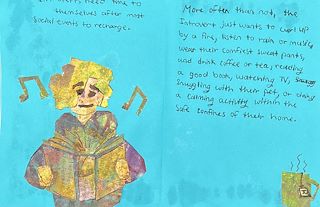 need time to
themselves after most
social events to recharge.
More often than not, the
Introvert just wants to curl up
by a fire, listen to rain or music,
wear their comfiest sweat pants,
and drink coffee or tea, reading
a good book, watching TV,
snuggling with their pet, or doing
a calming activity within the
safe confines of their home.